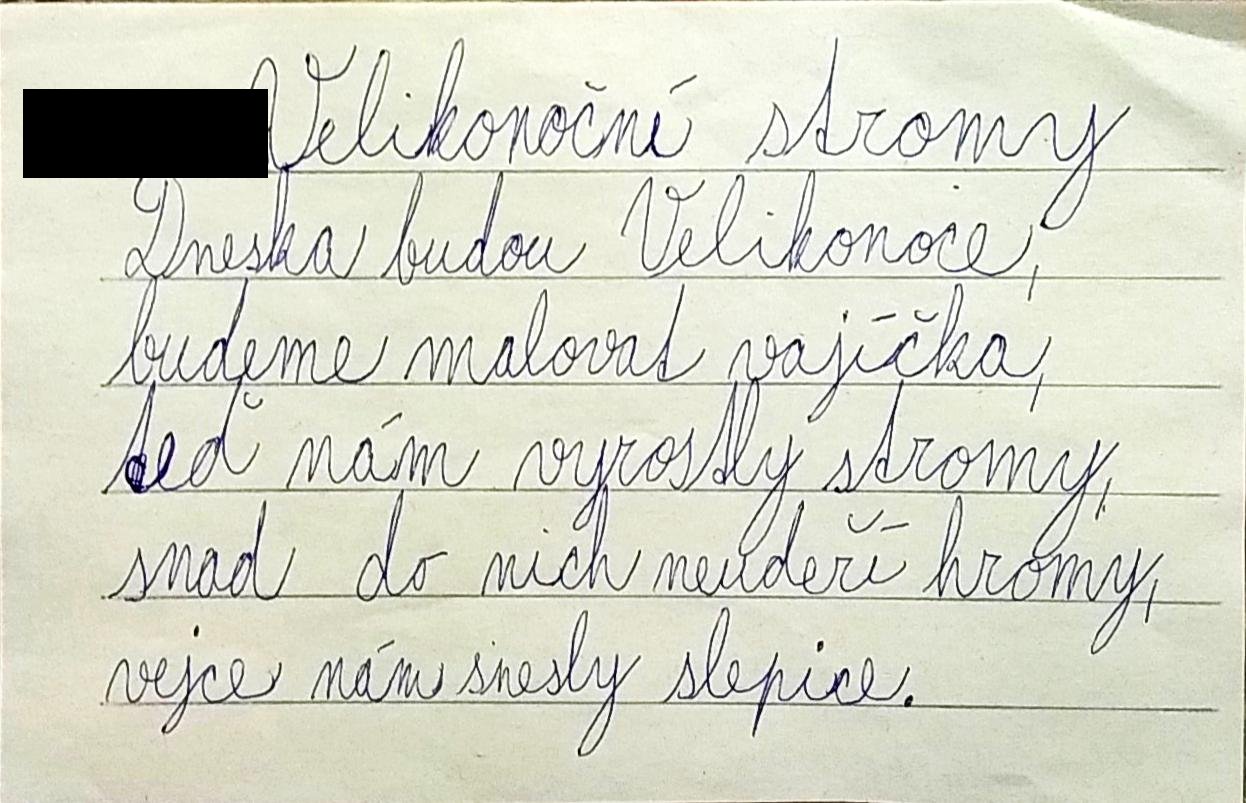 Velikonoční stromy
Dneska budou Velikonoce,
budeme malovat vajíčka,
teď nám vyrostly stromy,
snad do nich neudeří hromy,
vejce nám snesly slepice.